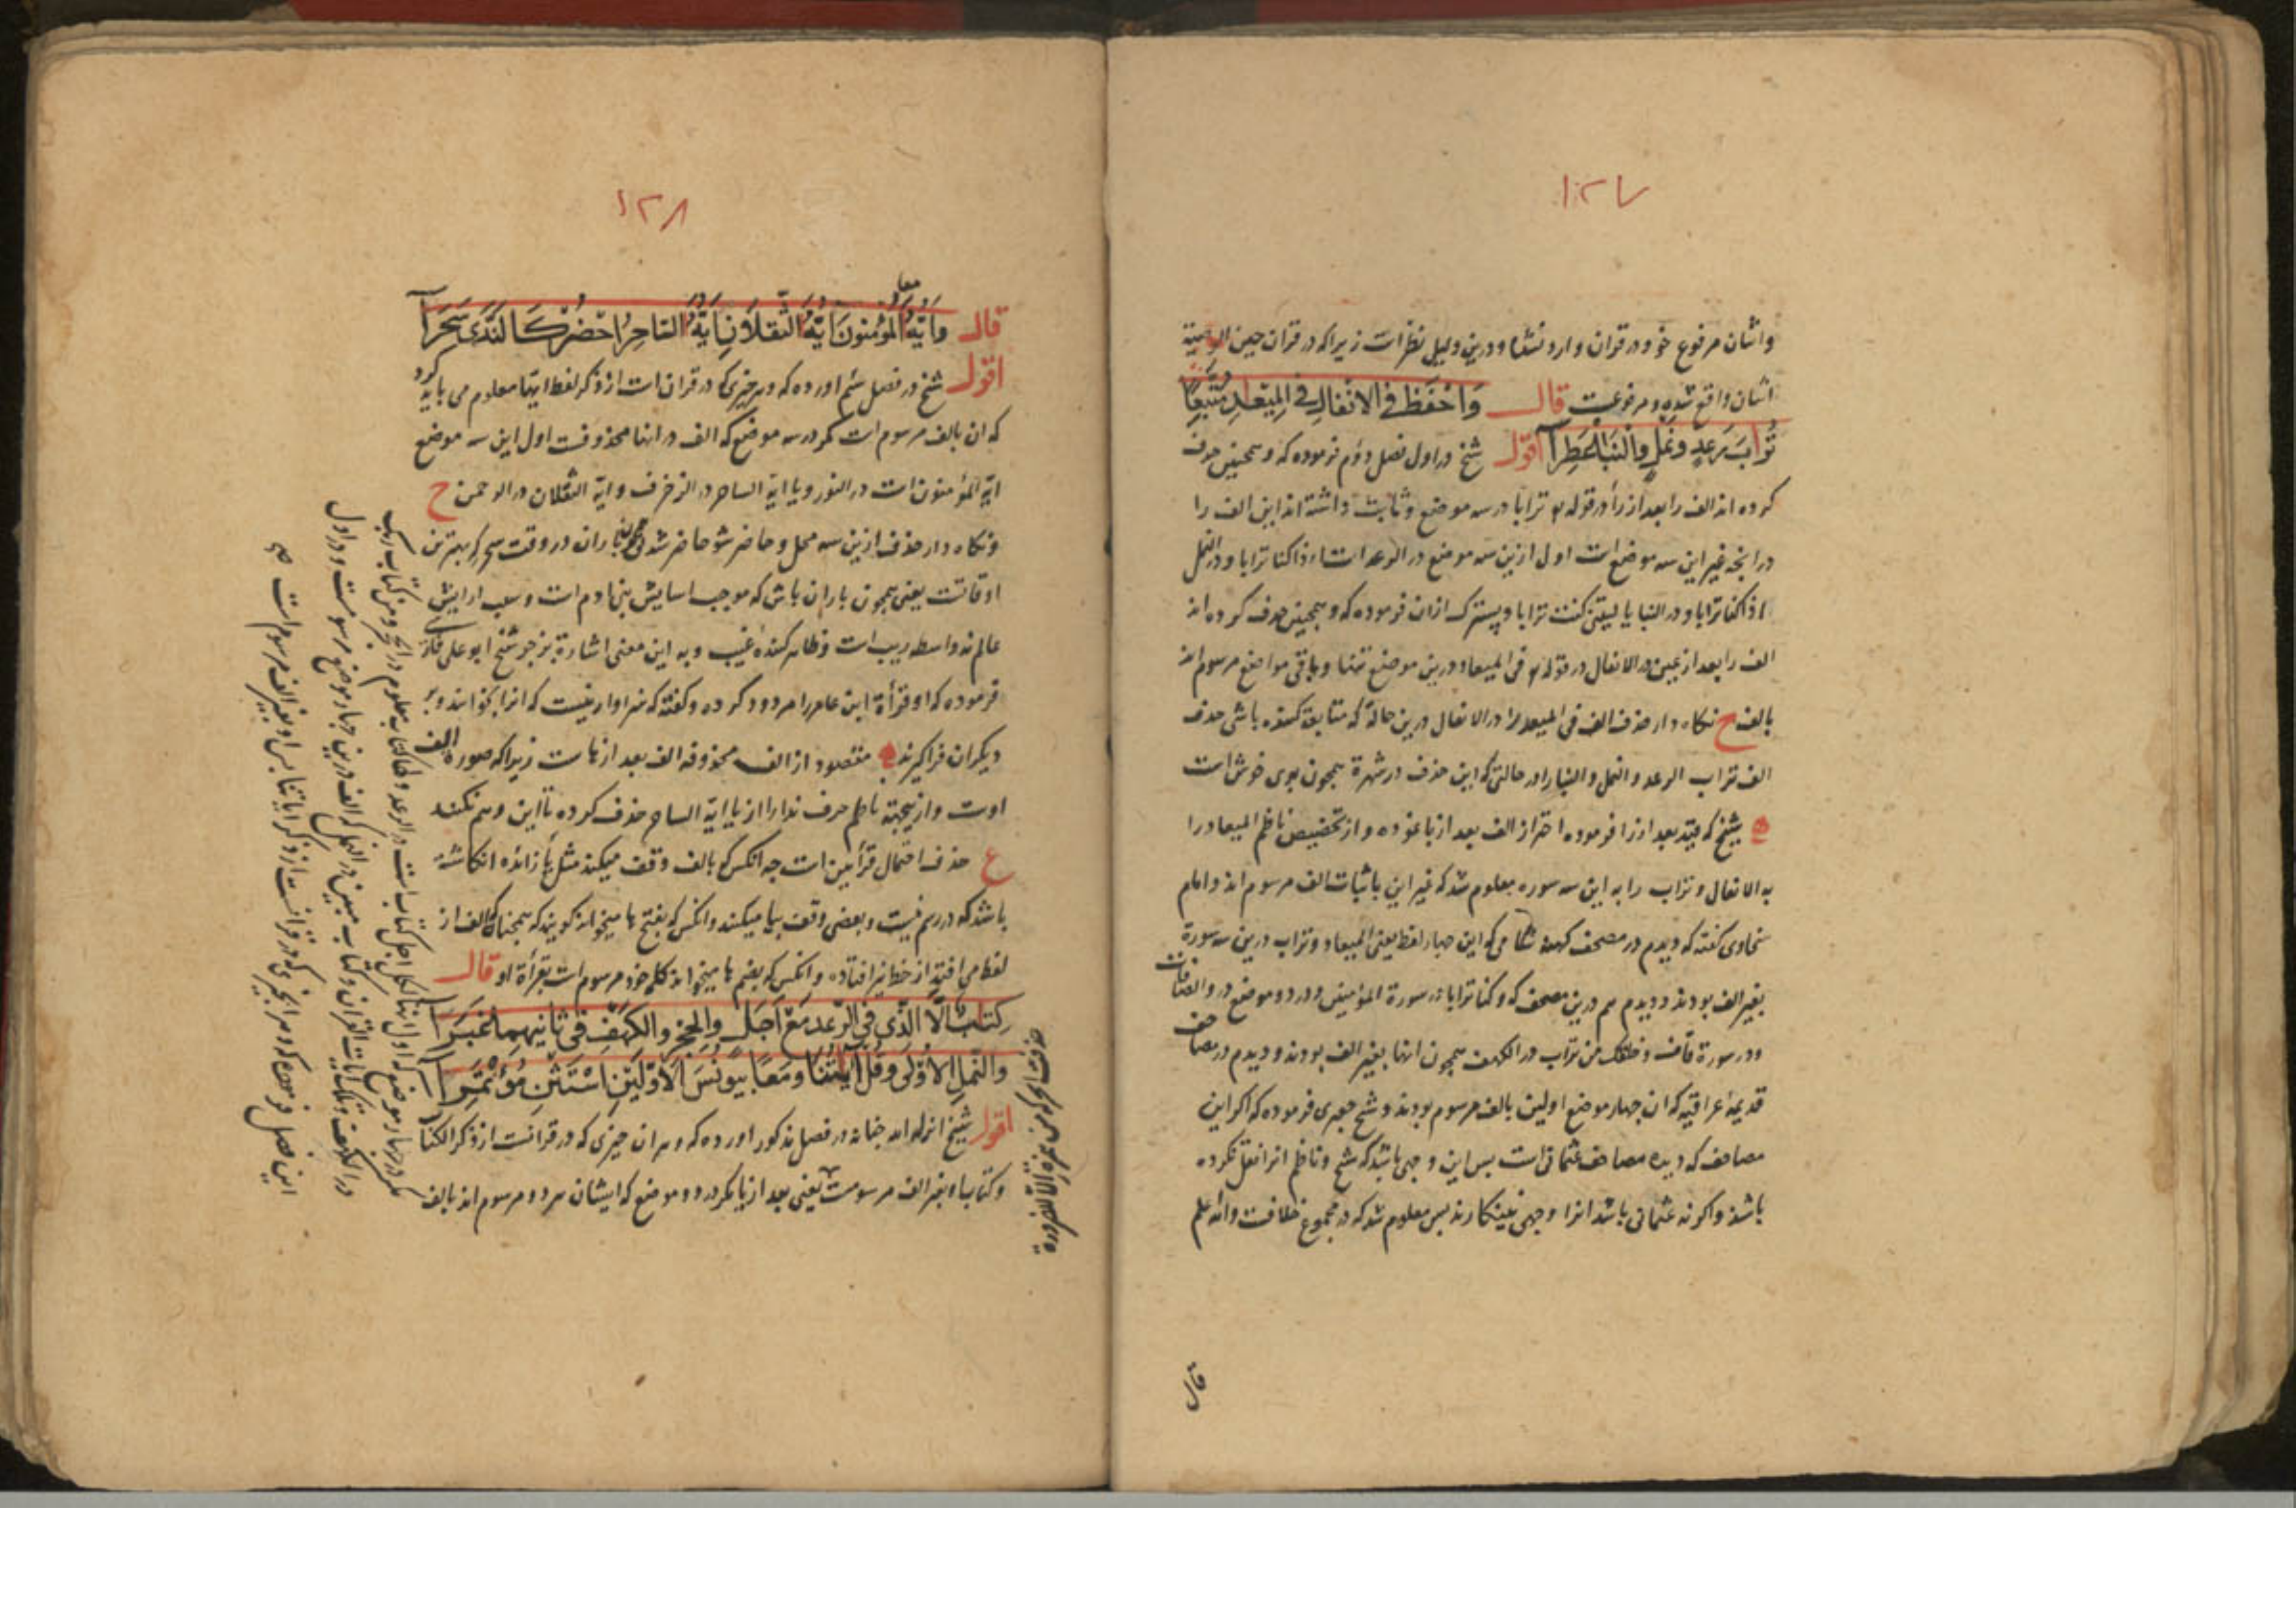 ۱۲۷
واثنان مرفوع خود در قران وارد نشد و درین دلیل نظر است زیرا که در قران حین الوصیة
اثنان واقع شده و مرفوعست قال وَاحْفَظ فی الانفالِ فی المِیْعٰدِ مُتَّبِعًا
تُرابَ رَعدٍ ونَملٍ والنَّبَاْ عَطِرَا اقول شیخ در اول فصل دوم فرموده که وهمچنین حذف
کرده اند الف را بعد از را در قوله تعالی ترابا در سه موضع و ثابت داشته اند این الف را
در انچه غیر این سه موضع است اول ازین سه موضع در الرعد است ءاذا کنا ترابا و در النمل
ءاذا کنا ترابا و در النبا یا لیتنی کنت ترابا و پیشتر ک ازان فرموده که وهمچنین حذف کرده اند
الف را بعد از عین در الانفال در قوله تعالی فی المیعاد درین موضع تنها و باقی مواضع مرسوم اند
بالف ح نکاه دار حذف الف فی المیعد را در الانفال درین حالة که متابعة کننده باشی حذف
الف تراب الرعد و النمل و النبا را در حالتی که این حذف در شهرة همچون بوی خوش است
شیخ که قید بعد از را فرموده احتراز از الف بعد از با نموده و از تخصیص ناظم المیعاد را
به الانفال و تراب را به این سه سوره معلوم شد که غیر این باثبات الف مرسوم اند و امام
سخاوی کفته که دیدم در مصحف کهنه شامی که این چهار لفظ یعنی المیعاد و تراب درین سه سورة
بغیر الف بودند و دیدم هم درین مصحف که و کنا ترابا در سورة المؤمنین و در دو موضع در والصافات
و در سورة قاف و خلقک من تراب در الکهف همچون اینها بغیر الف بودند و دیدم در مصاحف
قدیمه عراقیه که ان چهار موضع اولین بالف مرسوم بودند و شیخ جعبری فرموده که اکر این
مصاحف که دیده مصاحف عثمانی است پس این وجهی باشد که شیخ و ناظم انرا نقل نکرده
باشند و اکر نه عثمانی باشد انرا وجهی نیست پس معلوم شد که در مجموع خلافست والله اعلم
قال
۱۲۸
معا
قال وَاَیُّهَ المُؤْمنونَ اَیُّهَ الثَّقَلَانِ یَاَیُّهَ السَّاحِرُ احْضُرْ کَالنَّدَی سَحَرَا
اقول شیخ در فصل ششم اورده که و هر چیزی که در قران است از ذکر لفظ ایها معلوم می باید کرد
که ان بالف مرسوم است مکر در سه موضع که الف در اینها محذوفست اول این سه موضع
ایه المؤمنون است در النور و یا ایه الساحر در الزخرف و ایه الثقلان در الرحمن ح
و نکاه دار حذف ازین سه محل و حاضر شو حاضر شدنی همچو باران در وقت سحر که بهترین
اوقاتست یعنی همچون باران باش که موجب اسایش بنی ادم است و سبب ارایش
عالم نه واسطه ریب است و ظاهر کننده غیب و به این معنی اشارة بزجر شیخ ابو علی فارسی
فرموده که او قرأة ابن عامر را مردود کرده و کفته که سزاوار نیست که انرا بخوانند و
دیکران فرا کیرند مقصود از الف محذوفه الف بعد از هاست زیرا که صورة الف
اوست و ازینجهة ناظم حرف ندا را از یا ایه الساحر حذف کرده تا این وهم نکنند
ع حذف احتمال قرأتین است چه انکس که بالف وقف میکند مثل یا زائده انکاشته
باشد که در رسم نیست و بعضی وقف بها میکنند و انکس که بفتح ها میخواند کویند که همچنانکه الف از
لفظ می افتد از خط نیز افتاده و انکس که بضم ها میخواند کلمه خود مرسوم است بقرأة او قال
کِتَابُ الَّا الَّذی فی الرَّعْدِ مَعْ اَجَلٍ والحِجْرِ والکَهْفِ فی ثَانِیهِمَا غَبَرَا
والنَّمْلِ الاُوْلَی وَقُلْ اٰیٰتُنَا وَمَعًا بِیُونُسَ الاَوَّلَیْنِ اسْتَثْنِ مُؤْتَمِرَا
اقول شیخ انزله الله جنانه در فصل مذکور اورده که و هر ان چیزی که در قرانست از ذکر الکتاب
و کتاب او بغیر الف مرسومست یعنی بعد از تا مکر در دو موضع که ایشان هر دو مرسوم اند بالف
مکر در چهار موضع که اول اینها لکل اجل کتاب است در الرعد و لها کتاب معلوم در الحجر و من کتاب ربک
در الکهف و تلک ایات القران و کتاب مبین در النمل که الف درین چهار موضع مرسومست و در اول
این فصل فرموده که و هر چیزی که در قرانست از ذکر ایاتنا پس او بغیر الف مرسوم است صح